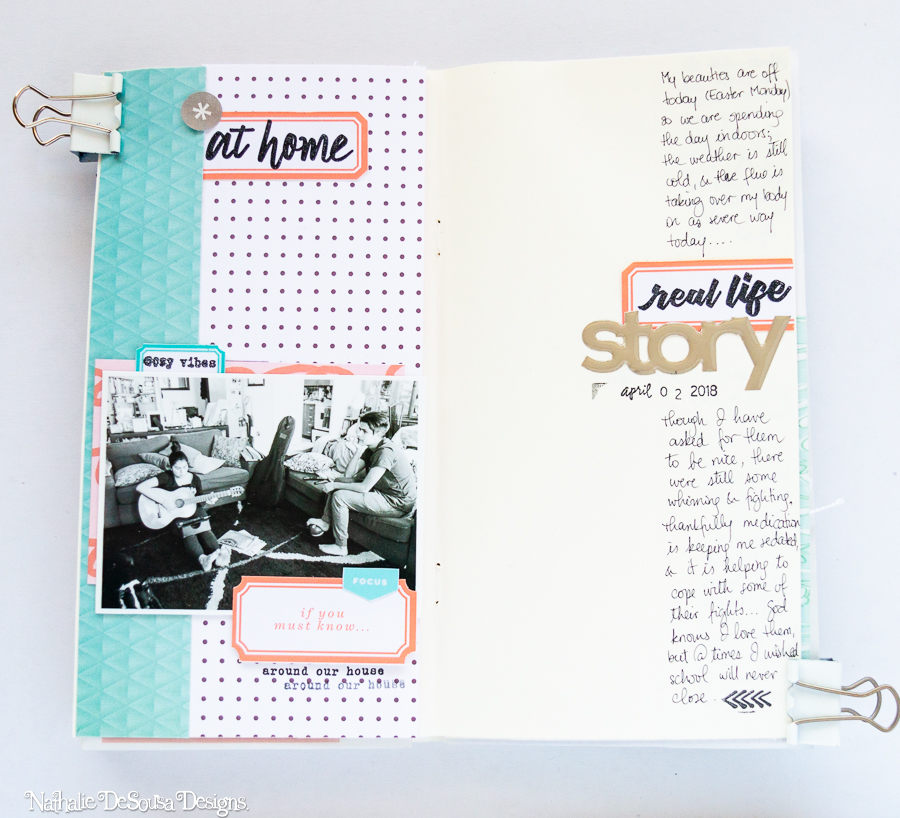 at home
cosy vibes
FOCUS
if you
must know...
around our house
around our house
My beauties are off
today (Easter Monday)
so we are spending
the day indoors;
the weather is still
cold, & the flu is
taking over my body
in as severe way
today....
real life
story
april 02 2018
though I have
asked for them
to be nice, there
were still some
whining & fighting,
thankfully medication
is keeping me sedated,
& it is helping to
cope with some of
their fights... God
knows I love them,
but @ times I wished
school will never
close...
Nathalie DeSousa Designs.